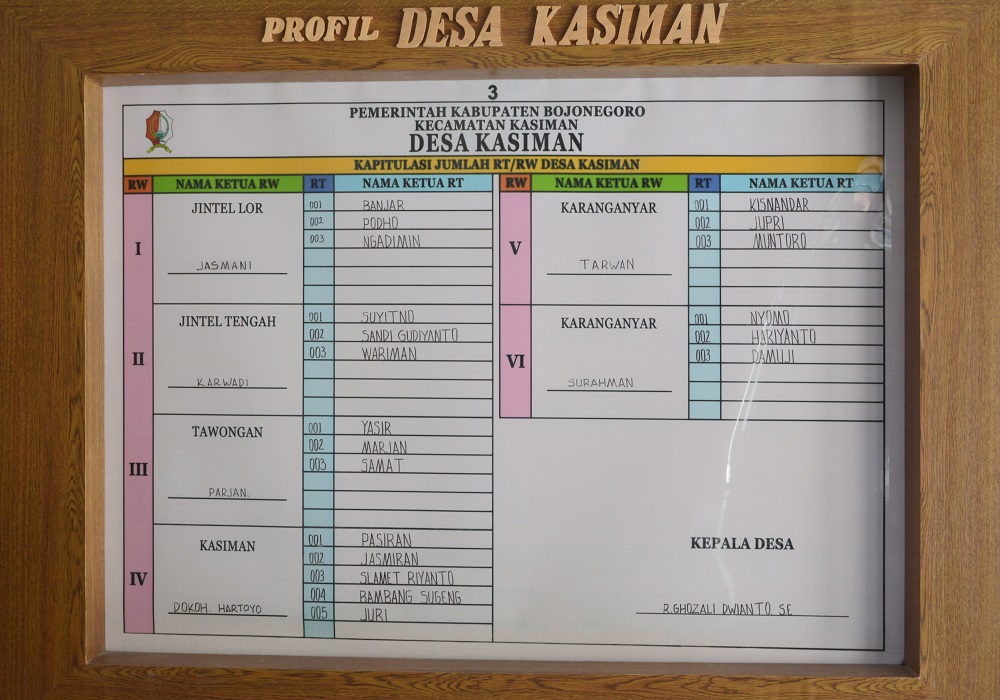 PROFIL DESA KASIMAN
3
PEMERINTAH KABUPATEN BOJONEGORO
KECAMATAN KASIMAN
DESA KASIMAN
KAPITULASI JUMLAH RT/RW DESA KASIMAN
RW NAMA KETUA RW RT NAMA KETUA RT
I JINTEL LOR
JASMANI
001 BANJAR
002 PODHO
003 NGADIMIN
II JINTEL TENGAH
KARWADI
001 SUYITNO
002 SANDI GUDIYANTO
003 WARIMAN
III TAWONGAN
PARJAN
001 YASIR
002 MARJAN
003 SAMAT
IV KASIMAN
DOKOH. HARTOYO
001 PASIRAN
002 JASMIRAN
003 SLAMET RIYANTO
004 BAMBANG SUGENG
005 JURI
RW NAMA KETUA RW RT NAMA KETUA RT
V KARANGANYAR
TARWAN
001 KISNANDAR
002 JUPRI
003 MUNTORO
VI KARANGANYAR
SURAHMAN
001 NYOMO
002 HARIYANTO
003 DAMUJI
KEPALA DESA
R.GHOZALI DWIANTO. SE